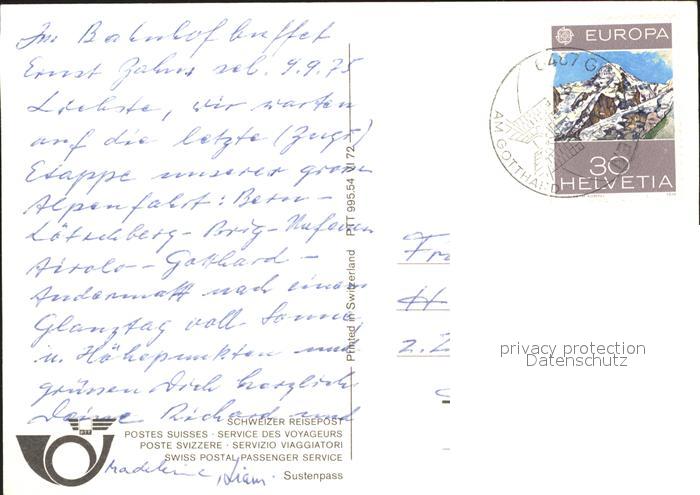 Im Bahnhofbuffet
Ernst Zahn sel. 9.9.75
Liebste, wir warten
auf die letzte (Zugs)
Etappe unserer gross
Alpenfahrt: Bern-
Lötschberg-Brig-Nufenen
Airolo-Gotthard-
Andermatt nach einem
Glanztag voll Sonne,
u. Höhepunkten und
grüssen Dich herzlich
Deine Richard und
Madeleine,
SCHWEIZER REISEPOST
POSTES SUISSES · SERVICE DES VOYAGEURS
POSTE SVIZZERE · SERVIZIO VIAGGIATORI
SWISS POSTAL PASSENGER SERVICE
Sustenpass
PTT
Printed in Switzerland PTT 995.54 VI 72
EUROPA
30
HELVETIA
AM GOTTHARD
Fr
H
privacy protection
Datenschutz